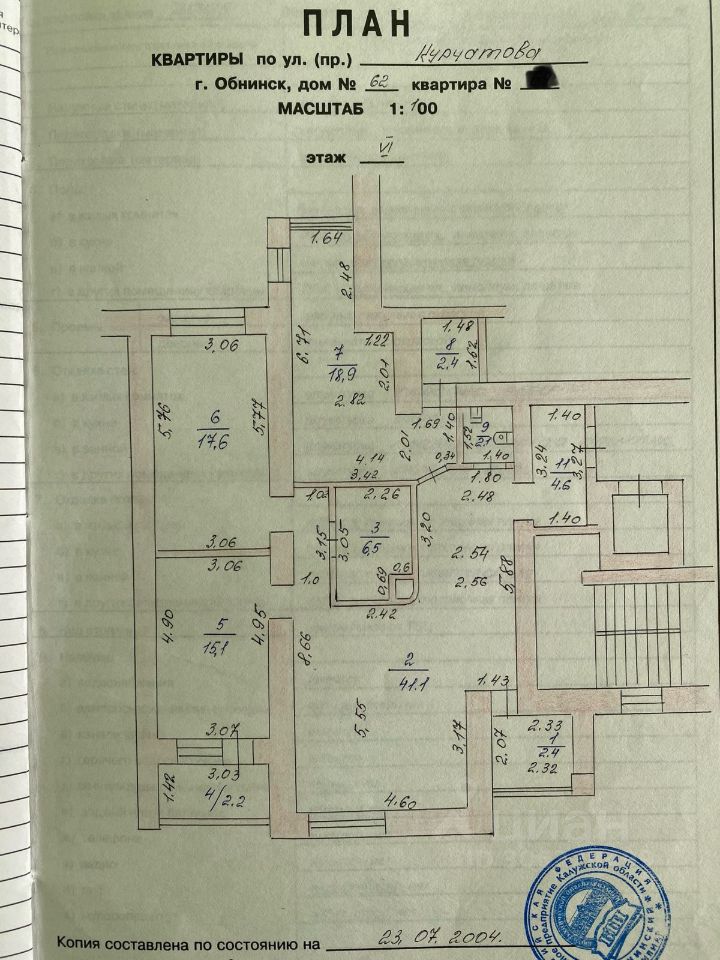 ПЛАН
КВАРТИРЫ по ул. (пр.) Курчатова
г. Обнинск, дом № 62 квартира №
МАСШТАБ 1:100
этаж VI
1.64
2.48
6.71
7
18,9
1.22
2.01
2.82
1.48
8
2.4
1.62
3,06
5,76
6
17,6
5,77
3.06
1.69
1.40
2,01
4.14
3,42
0,34
1,52
9
2.1
1.40
1.40
3,24
11
4.6
3,27
1.40
1.80
2.48
2.26
3.15
3.05
3
6,5
3,20
0,69
0,6
2.42
1.0
2.54
2,56
5,88
3.06
4.90
5
15,1
4.95
3,07
8,66
2
41.1
5,55
3,17
4.60
1.43
2.33
2.07
1
2.4
2.32
1.42
3,03
4/2.2
циан
ФЕДЕРАЦИЯ
предприятие Калужской области
Копия составлена по состоянию на 23.07.2004.